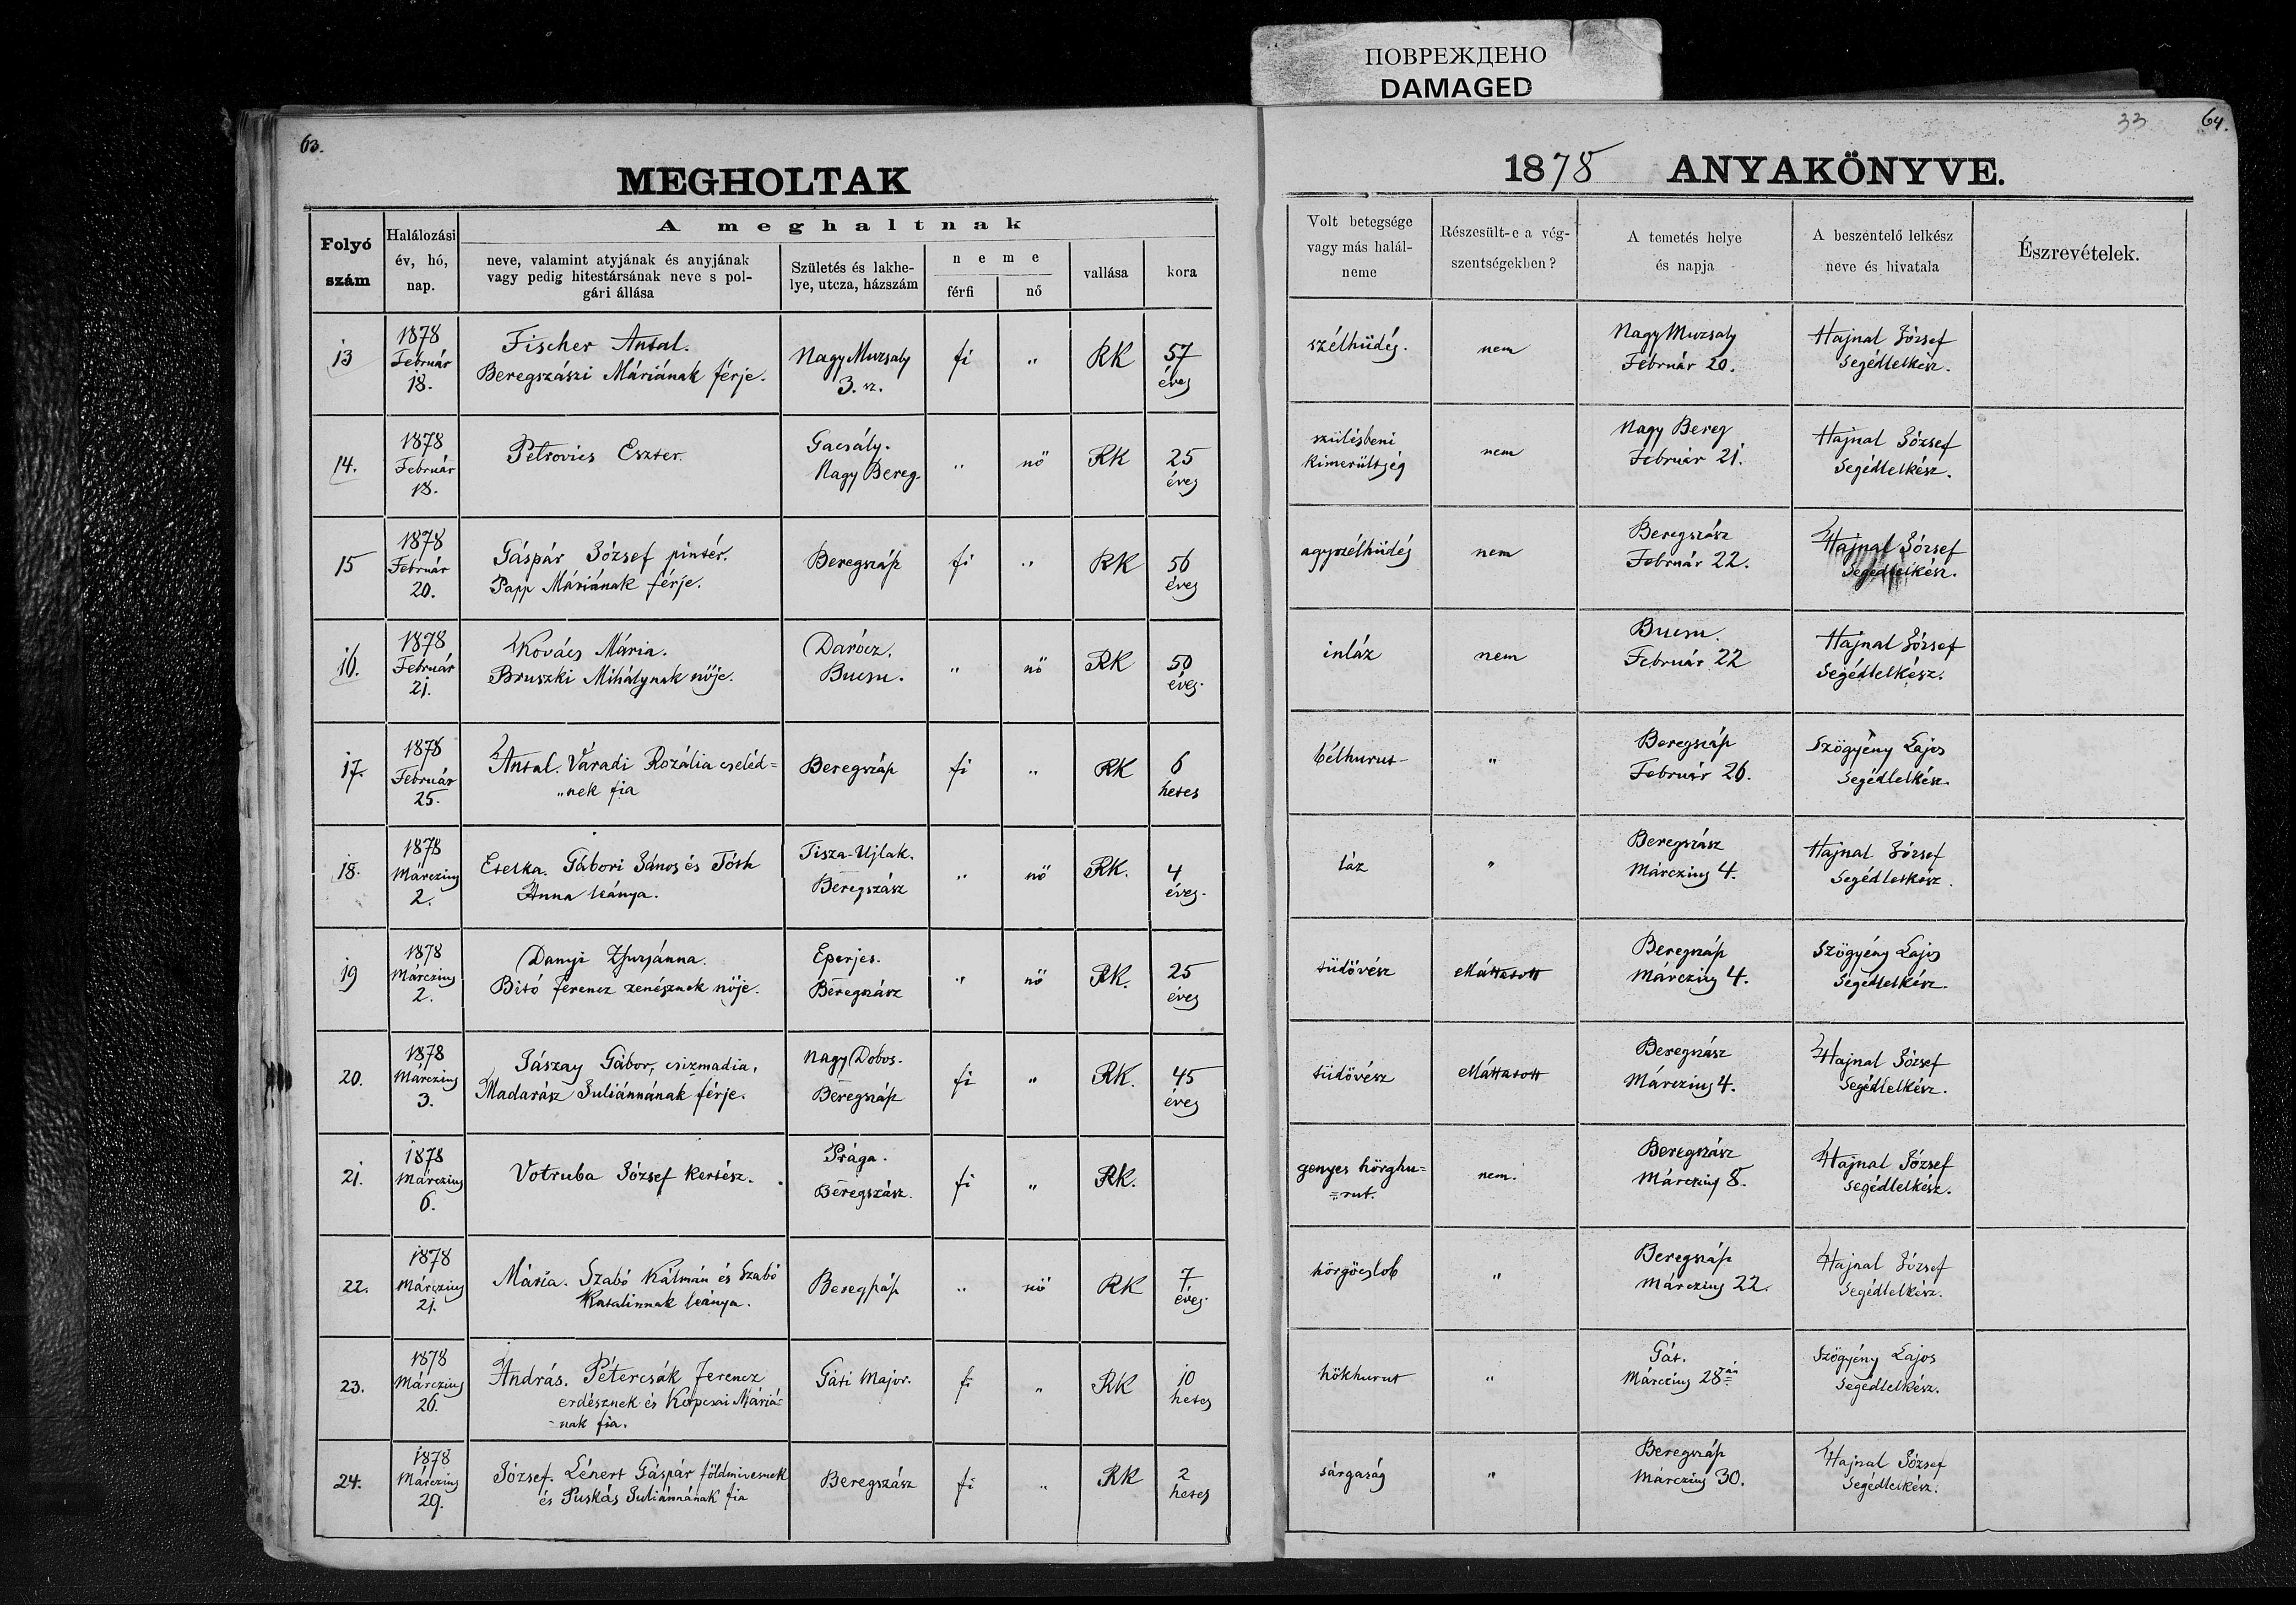 ПОВРЕЖДЕНО
DAMAGED
63.
MEGHOLTAK
Folyó szám
Halálozási év, hó, nap.
A meghaltnak
neve, valamint atyjának és anyjának
vagy pedig hitestársának neve s pol-
gári állása
Születés és lakhe-
lye, utcza, házszám
neme
férfi
nő
vallása
kora
13 1878 Február 18. Fischer Antal. Beregszászi Máriának férje. Nagy Muzsaly 3. sz. fi " RK 57 éves
14. 1878 Február 18. Petrovics Eszter. Gacsály. Nagy Bereg. " nő RK 25 éves
15 1878 Február 20. Gáspár József pintér. Papp Máriának férje. Beregszász fi " RK 56 éves
16. 1878 Február 21. Kovács Mária. Pruszki Mihálynak nője. Darócz. Bucsu. " nő RK 50 éves.
17. 1878 Február 25. Antal. Váradi Rozália cseléd=
"nek fia Beregszász fi " RK 6 hetes
18. 1878 Márczius 2. Etelka. Gábori János és Tóth
Anna leánya. Tisza-Ujlak. Beregszász " nő RK. 4 éves.
19 1878 Márczius 2. Danyi Zsuzsánna. Bitó Ferencz zenésznek nője. Eperjes. Beregszász " nő RK. 25 éves
20. 1878 Márczius 3. Jászay Gábor, csizmadia, Madarász Juliánnának férje. Nagy Dobos. Beregszász fi " RK. 45 éves
21. 1878 Márczius 6. Votruba József kertész. Prága. Beregszász. fi " RK.
22. 1878 Márczius 21. Mária. Szabó Kálmán és Szabó
Katalinnak leánya. Beregszász " nő RK 7 éves.
23. 1878 Márczius 26. András. Pétercsák Ferencz
erdésznek és Korpcsai Máriá=
nak fia. Gáti Major. fi " RK 10 hetes
24. 1878 Márczius 29. József. Lénert Gáspár földmivesnek
és Puskás Juliánnának fia Beregszász fi " RK 2 hetes
33
64.
1878 ANYAKÖNYVE.
Volt betegsége
vagy más halál-
neme
Részesült-e a vég-
szentségekben?
A temetés helye
és napja
A beszentelő lelkész
neve és hivatala
Észrevételek.
szélhüdés. nem Nagy Muzsaly Február 20. Hajnal József Segédlelkész.
szülésbeni kimerültség nem Nagy Bereg Február 21. Hajnal József Segédlelkész.
agyszélhüdés nem Beregszász Február 22. Hajnal József Segédlelkész.
inláz nem Bucsu. Február 22 Hajnal József Segédlelkész.
bélhurut " Beregszász Február 26. Szögyény Lajos Segédlelkész.
láz " Beregszász Márczius 4. Hajnal József Segédlelkész.
tüdővész elláttatott Beregszász Márczius 4. Szögyény Lajos Segédlelkész.
tüdővész elláttatott Beregszász Márczius 4. Hajnal József Segédlelkész.
genyes hörghu=
=rut. nem. Beregszász Márczius 8. Hajnal József Segédlelkész.
hörgőcslob " Beregszász Márczius 22. Hajnal József Segédlelkész.
hökhurut " Gát. Márczius 28án Szögyény Lajos Segédlelkész.
sárgaság " Beregszász Márczius 30. Hajnal József Segédlelkész.